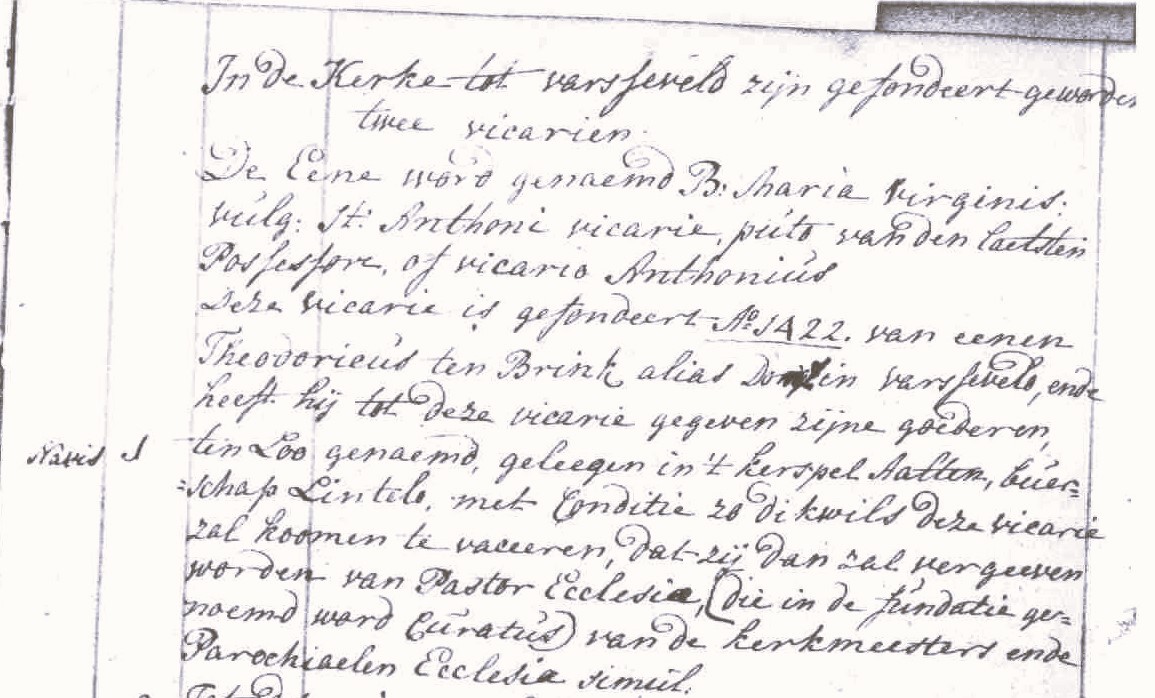 In de Kerke tot varsseveld zijn gefondeert geworden
twee vicarien.
De Eene word genaemd B: Maria virginis:
vulg: St: Anthoni vicarie, puto van den laetsten
Possessore, of vicario Anthonius
Deze vicarie is gefondeert Ao 1422. van eenen
Theodoricus ten Brink alias in varsseveld, ende
heeft hij tot deze vicarie gegeven zijne goederen,
Navis 1 ten Loo genaemd, geleegen in 't kerspel Aalten, buer=
=schap Lintelo, met Conditie zo dikwils deze vicarie
zal koomen te vaceeren, dat zij dan zal vergeeven
worden van Pastor Ecclesia, (die in de fundatie ge=
noemd word Curatus) van de kerkmeesters ende
Parochiaelen Ecclesia simul.